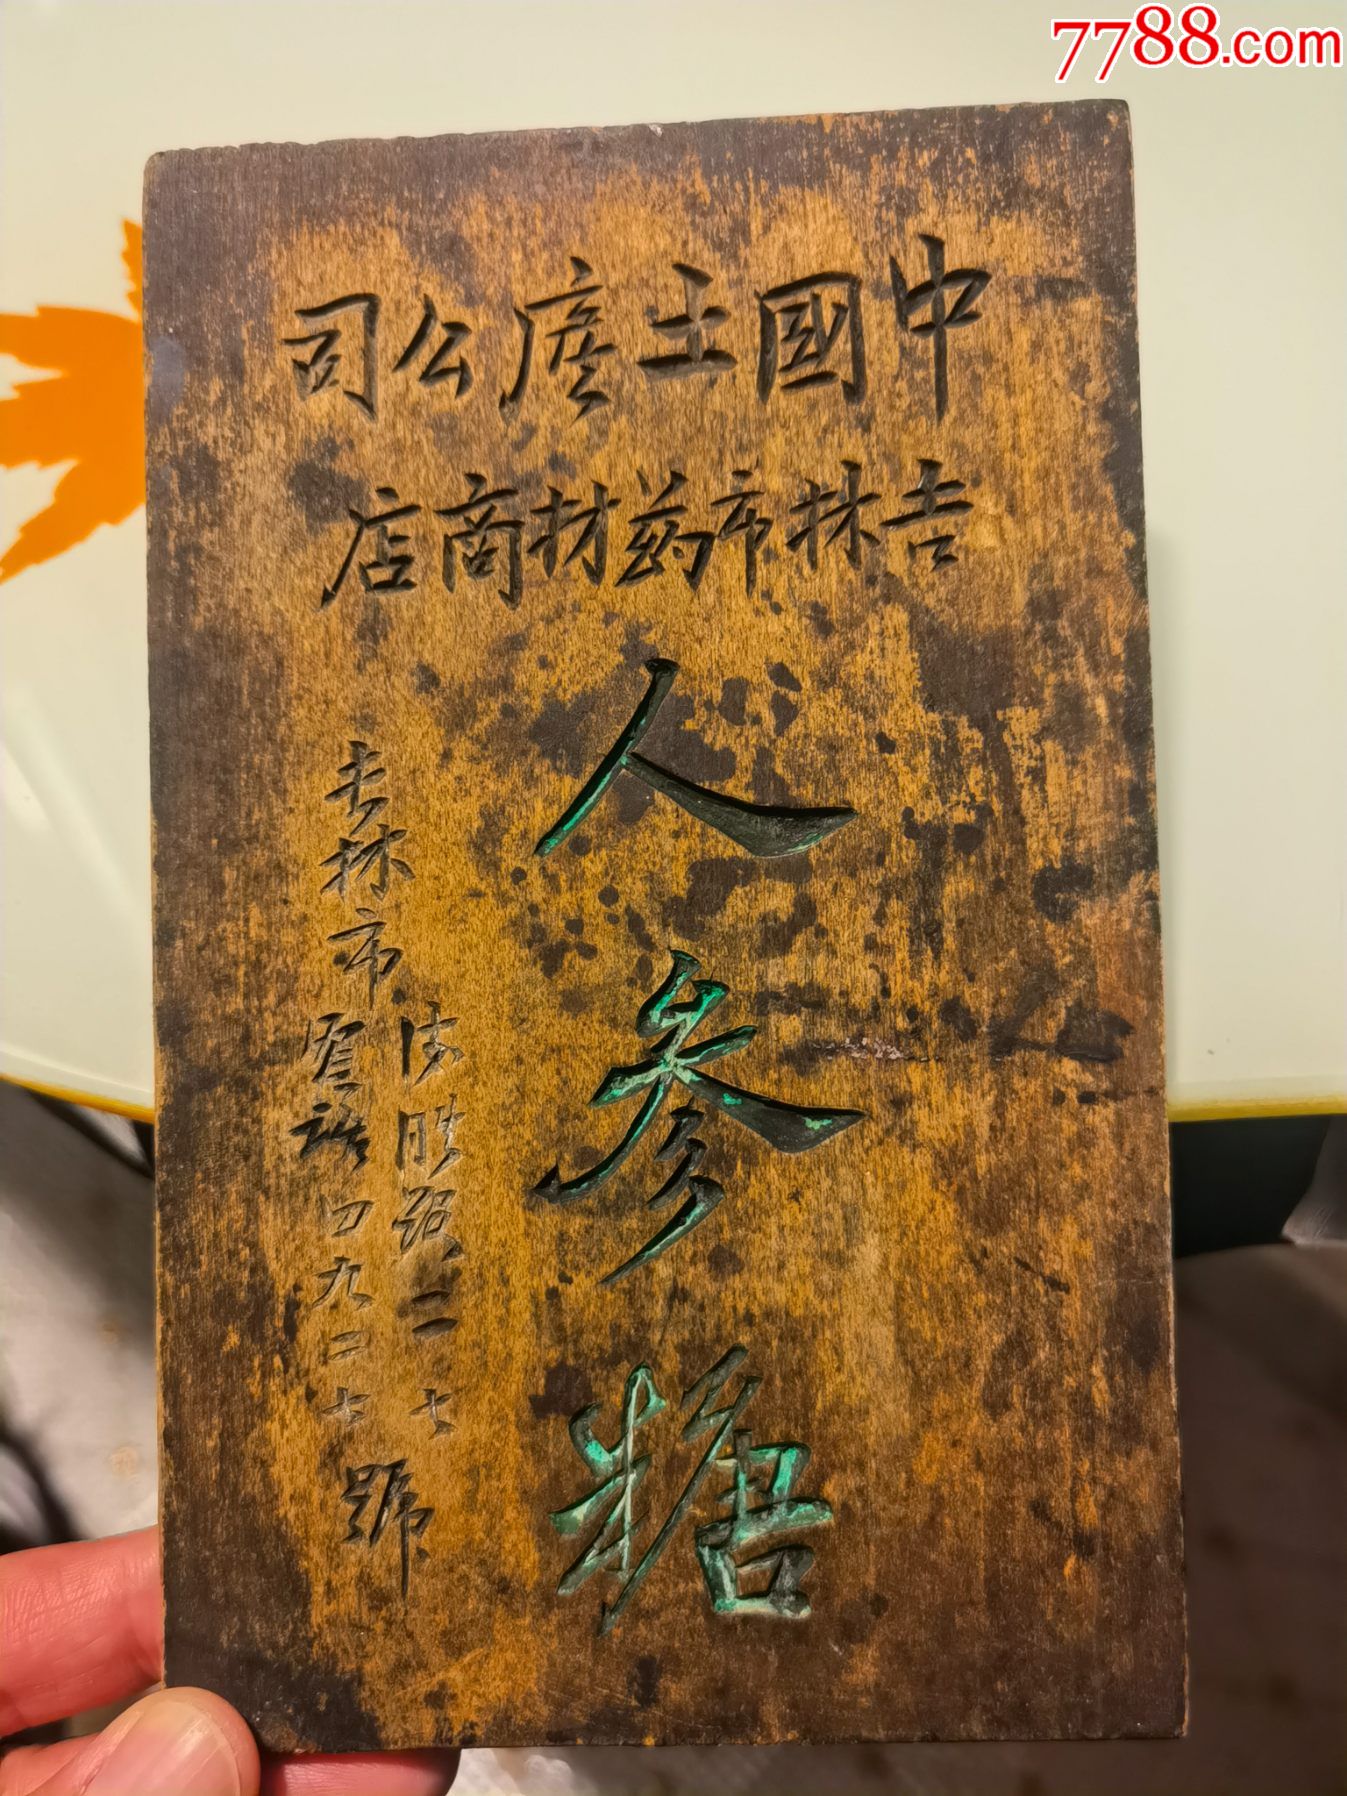 7788.com
中國土產公司
吉林市药材商店
人參糖
吉林市
德胜路二七
電話四九二七
號